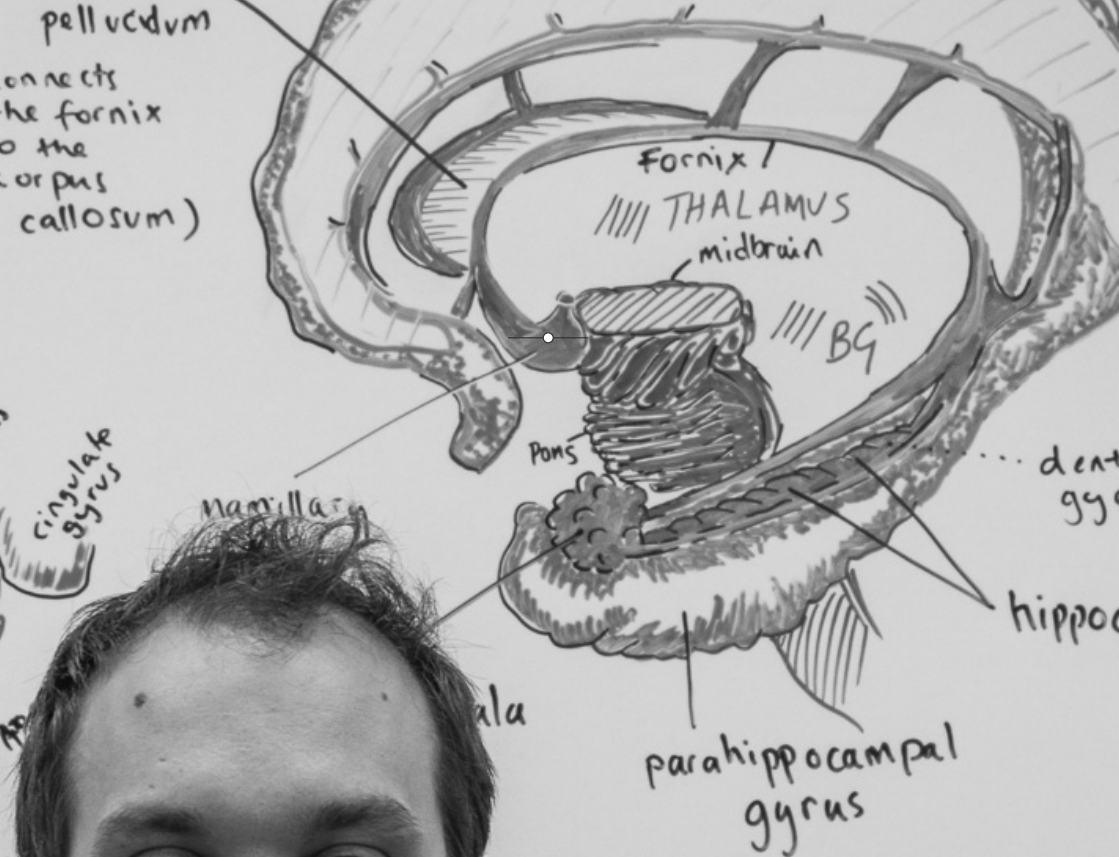 pellucidum
onnects
the fornix
o the
corpus
callosum)
Fornix
THALAMUS
midbrain
BG
Pons
cingulate
gyrus
mamillary
dent
gy
hippoc
ala
parahippocampal
gyrus